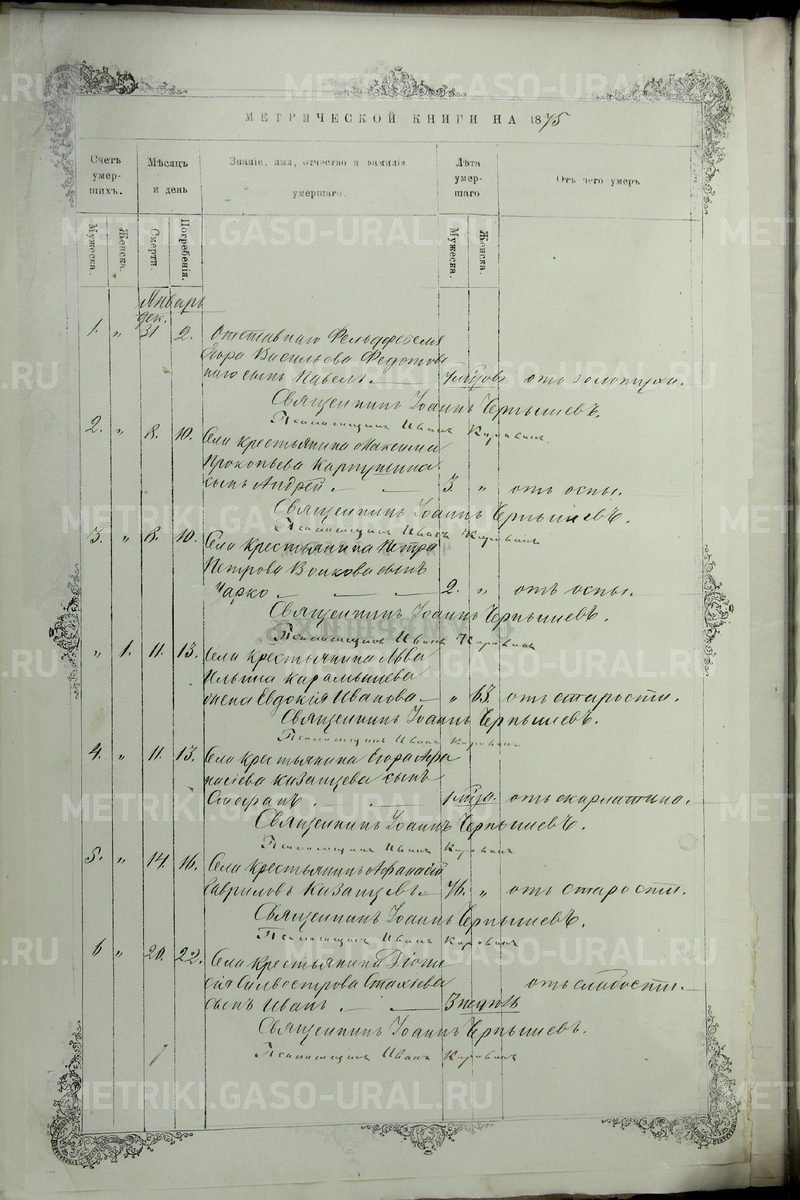 МЕТРИЧЕСКОЙ КНИГИ НА 1875
Счетъ умер- шихъ.
Мѣсяцъ и день
Званіе, имя, отчество и фамилія умершаго.
Лѣта умер- шаго
Отъ чего умеръ
Мужеска.
Женска.
Смерти.
Погребенія.
Мужеска.
Женска.
Январь
Дек.
1. " 31 2. Отставнаго Фельдфебеля
Васильева Федотов
наго сынъ Павелъ.
Священникъ Іоаннъ Чернышевъ.
Псаломщикъ Иванъ
2. " 8. 10. Села крестьянина Максима
Прокопьева
сынъ Андрей. 3. " отъ оспы.
Священникъ Іоаннъ Чернышевъ.
Псаломщикъ Иванъ
3. " 8. 10. Села крестьянина Петра
Петрова Волкова сынъ
Марко 2. " отъ оспы.
Священникъ Іоаннъ Чернышевъ.
Псаломщикъ Иванъ
" 1. 11. 13. Села крестьянина Льва
Ильина Карамышева
жена Евдокія Иванова " 63. отъ старости.
Священникъ Іоаннъ Чернышевъ.
Псаломщикъ Иванъ
4. " 11. 13. Села крестьянина Егора Афа
насіева Казанцева сынъ
Стефанъ отъ скарлатина.
Священникъ Іоаннъ Чернышевъ.
Псаломщикъ Иванъ
5. " 14. 16. Села крестьянинъ Афанасій
Гавриловъ Казанцевъ. 76. " отъ старости.
Священникъ Іоаннъ Чернышевъ.
Псаломщикъ Иванъ
6 " 20. 22. Села крестьянина Діони
сія Сильвестрова отъ слабости.
сынъ Иванъ.
Священникъ Іоаннъ Чернышевъ.
Псаломщикъ Иванъ
METRIKI.GASO-URAL.RU